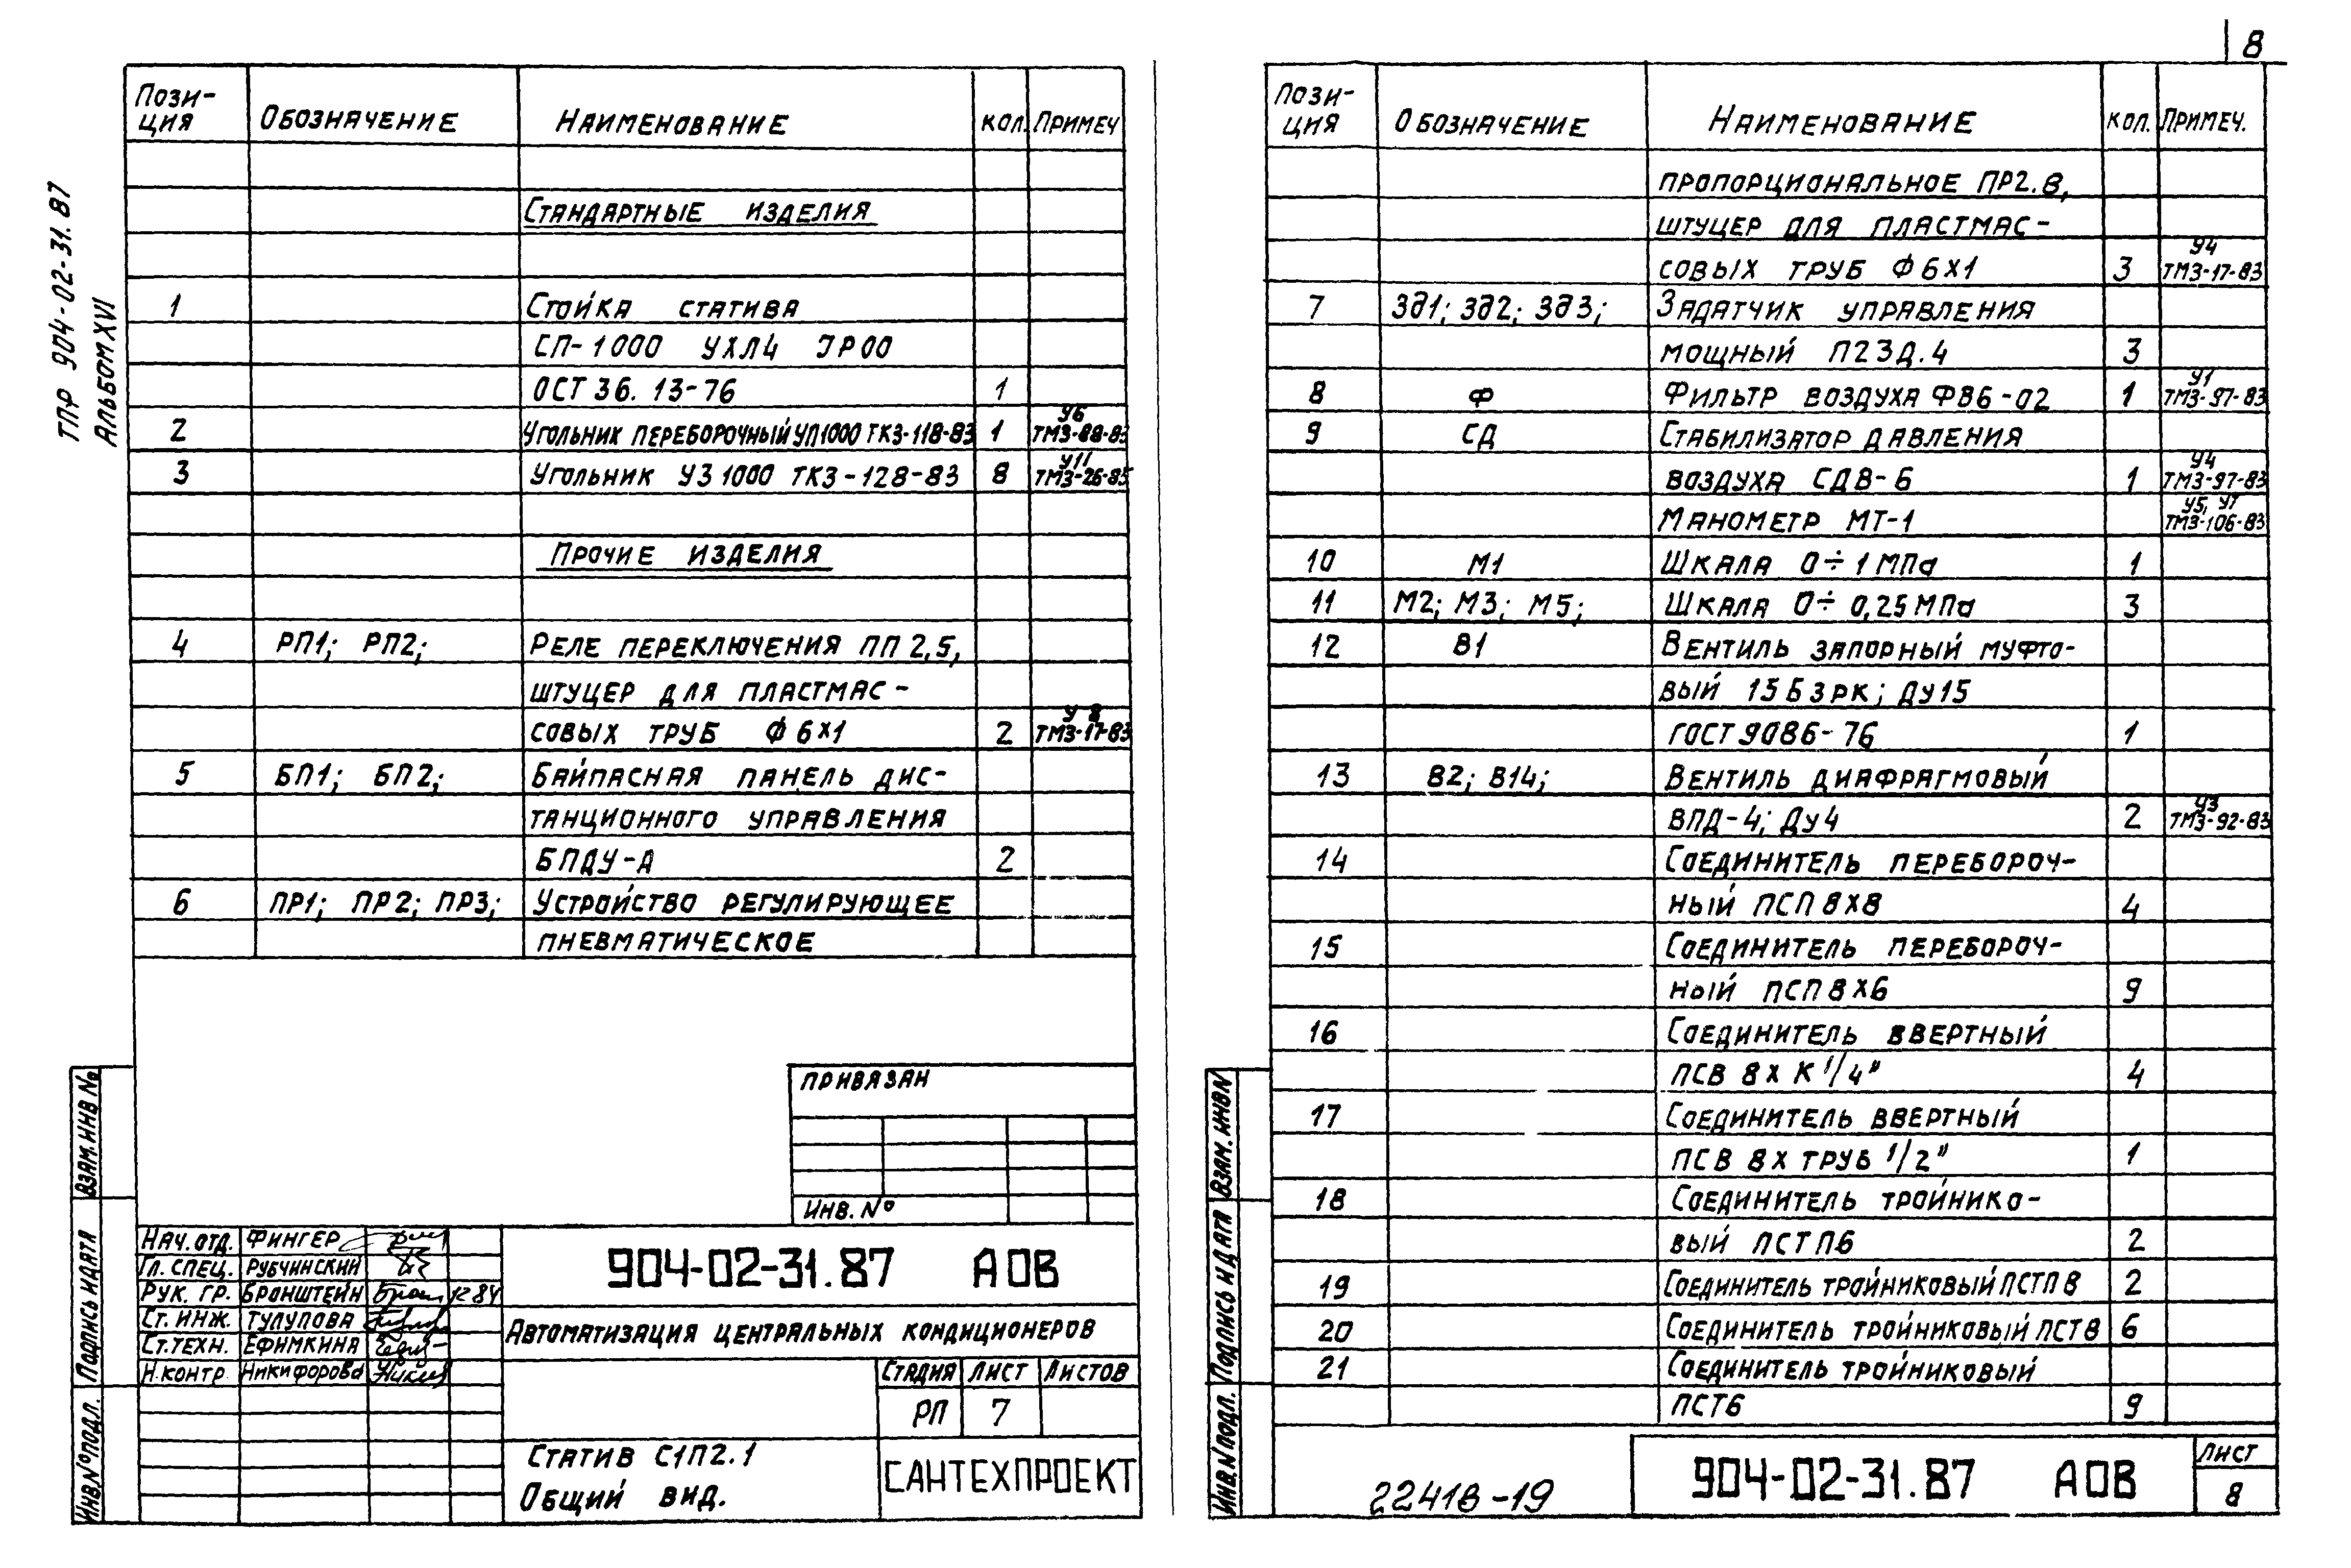 8
ТПР 904-02-31.87
Альбом XVI
Пози-
ция Обозначение Наименование кол. Примеч
Стандартные изделия
1 Стойка статива
СП-1000 УХЛ4 IP00
ОСТ 36. 13-76 1
У6
2 Угольник переборочный УП1000 ТК3-118-83 1 ТМ3-88-83
У11
3 Угольник УЗ 1000 ТК3-128-83 8 ТМ3-26-83
Прочие изделия
4 РП1; РП2; Реле переключения ПП 2,5,
штуцер для пластмас-
У 8
совых труб Ф 6х1 2 ТМ3-17-83
5 БП1; БП2; Байпасная панель дис-
танционного управления
БПДУ-А 2
6 ПР1; ПР2; ПР3; Устройство регулирующее
пневматическое
Привязан
Инв. №
Нач. отд. Фингер
Гл. спец. Рубчинский
Рук. гр. Бронштейн 12 84
Ст. инж. Тулупова
Ст. техн. Ефимкина
Н. контр. Никифорова
904-02-31.87 АОВ
Автоматизация центральных кондиционеров
Стадия Лист Листов
РП 7
Статив С1П2.1
Общий вид.
САНТЕХПРОЕКТ
Взам. инв №
Подпись и дата
Инв. № подл.
Пози-
ция Обозначение Наименование кол. Примеч.
пропорциональное ПР2.8,
штуцер для пластмас-
У4
совых труб Ф 6х1 3 ТМ3-17-83
7 Зд1; Зд2; Зд3; Задатчик управления
мощный П23Д.4 3
У1
8 Ф Фильтр воздуха ФВ6-02 1 ТМ3-97-83
9 СД Стабилизатор давления
У4
воздуха СДВ-6 1 ТМ3-97-83
У5, У7
Манометр МТ-1 ТМ3-106-83
10 М1 Шкала 0÷1 МПа 1
11 М2; М3; М5; Шкала 0÷0,25 МПа 3
12 В1 Вентиль запорный муфто-
вый 15Б3рк; Ду15
ГОСТ 9086-76 1
13 В2; В14; Вентиль диафрагмовый
У3
ВПД-4; Ду4 2 ТМ3-92-83
14 Соединитель перебороч-
ный ПСП 8х8 4
15 Соединитель перебороч-
ный ПСП 8х6 9
16 Соединитель ввертный
ПСВ 8х К 1/4" 4
17 Соединитель ввертный
ПСВ 8х труб 1/2" 1
18 Соединитель тройнико-
вый ПСТП6 2
19 Соединитель тройниковый ПСТП 8 2
20 Соединитель тройниковый ПСТ 8 6
21 Соединитель тройниковый
ПСТ6 9
Взам. инв N
Подпись и дата
Инв. N подл.
22418-19
904-02-31.87 АОВ
Лист
8